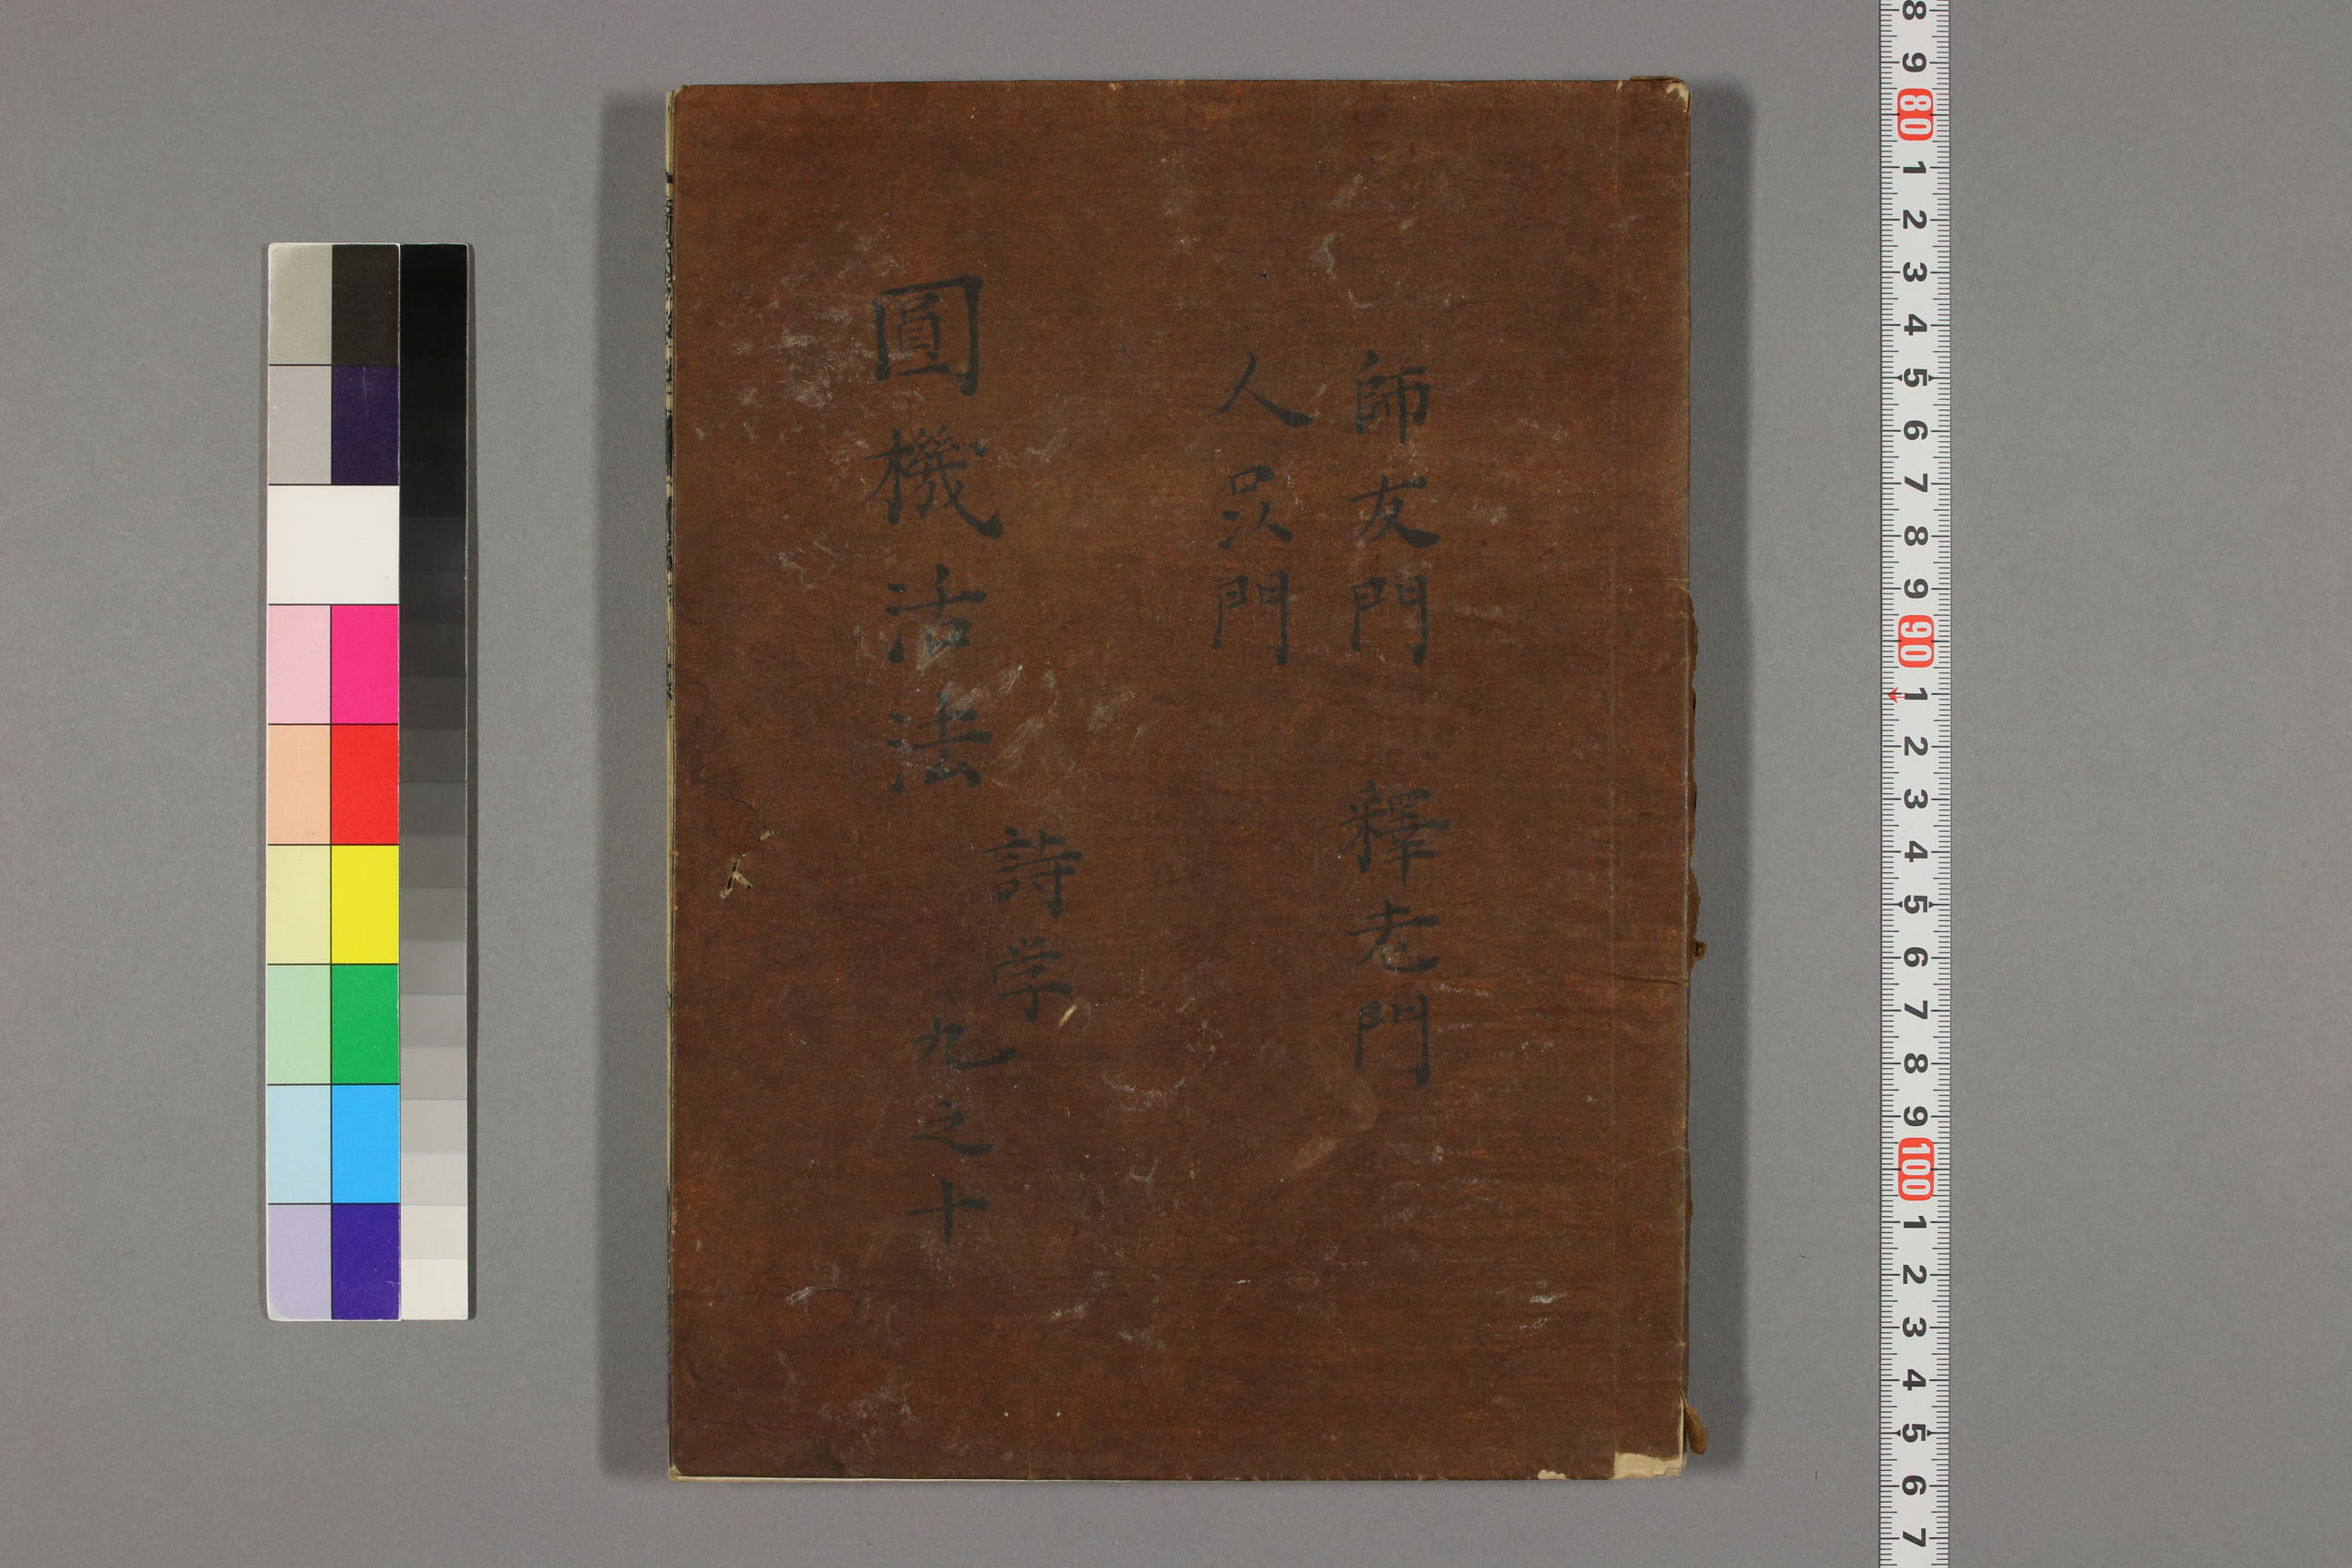 師友門 釋老門
人品門
圓機活法 詩学 九之十
8 9 80 1 2 3 4 5 6 7 8 9 90 1 2 3 4 5 6 7 8 9 100 1 2 3 4 5 6 7